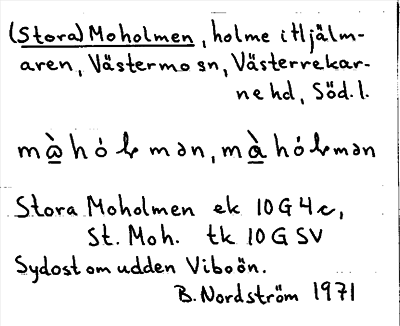 (Stora) Moholmen, holme i Hjälm-
aren, Västermo sn, Västerrekar-
ne hd, Söd. l.
Stora Moholmen ek 10G4c,
St. Moh. tk 10GSV
Sydost om udden Viboön.
B. Nordström 1971